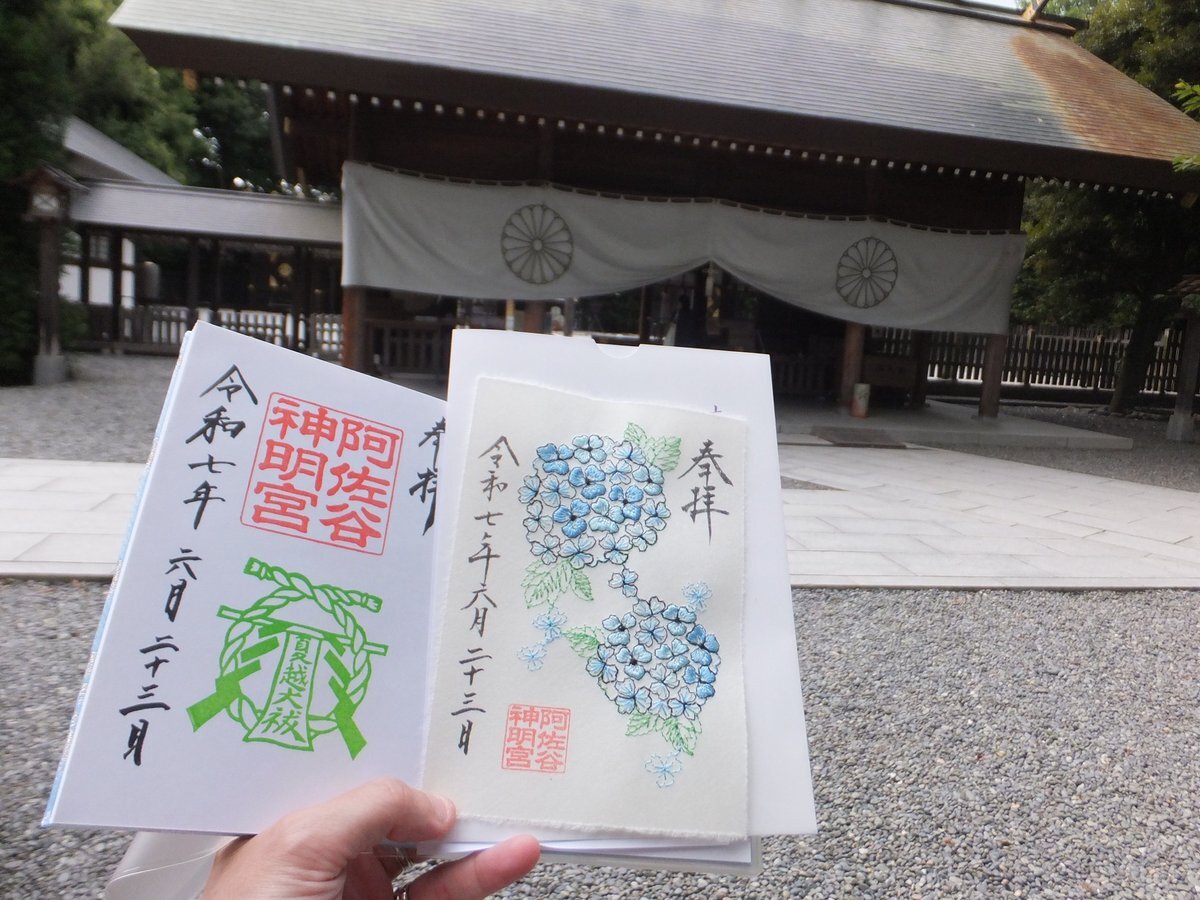 奉拝
阿佐谷
神明宮
夏越大祓
令和七年 六月 二十三日
奉拝
阿佐谷
神明宮
令和七年六月 二十三日